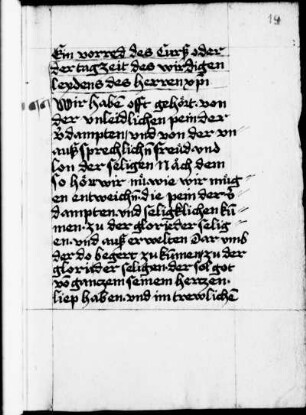 19
Ein vorred des Curß oder
der tag zeit des wirdigen
leydens des herren xp̄i
Wir habē offt gehört. von
der vnleidlichen pein der
v̄dampten vnd von der vn
außsprechlichn̄ freud vnd
lon der seligen Nach dem
so hör wir nū. wie wir müg
en entweichn̄ die pein der v̄
dampten. vnd seligklichen kū
men. zu der glori der selig
en. vnd auß erwelten Dar vmb
der do begert zu kūmen zu der
glori der seligen. der sol got
vō ganczem seinem hertzen.
liep haben. vnd im trewlichē